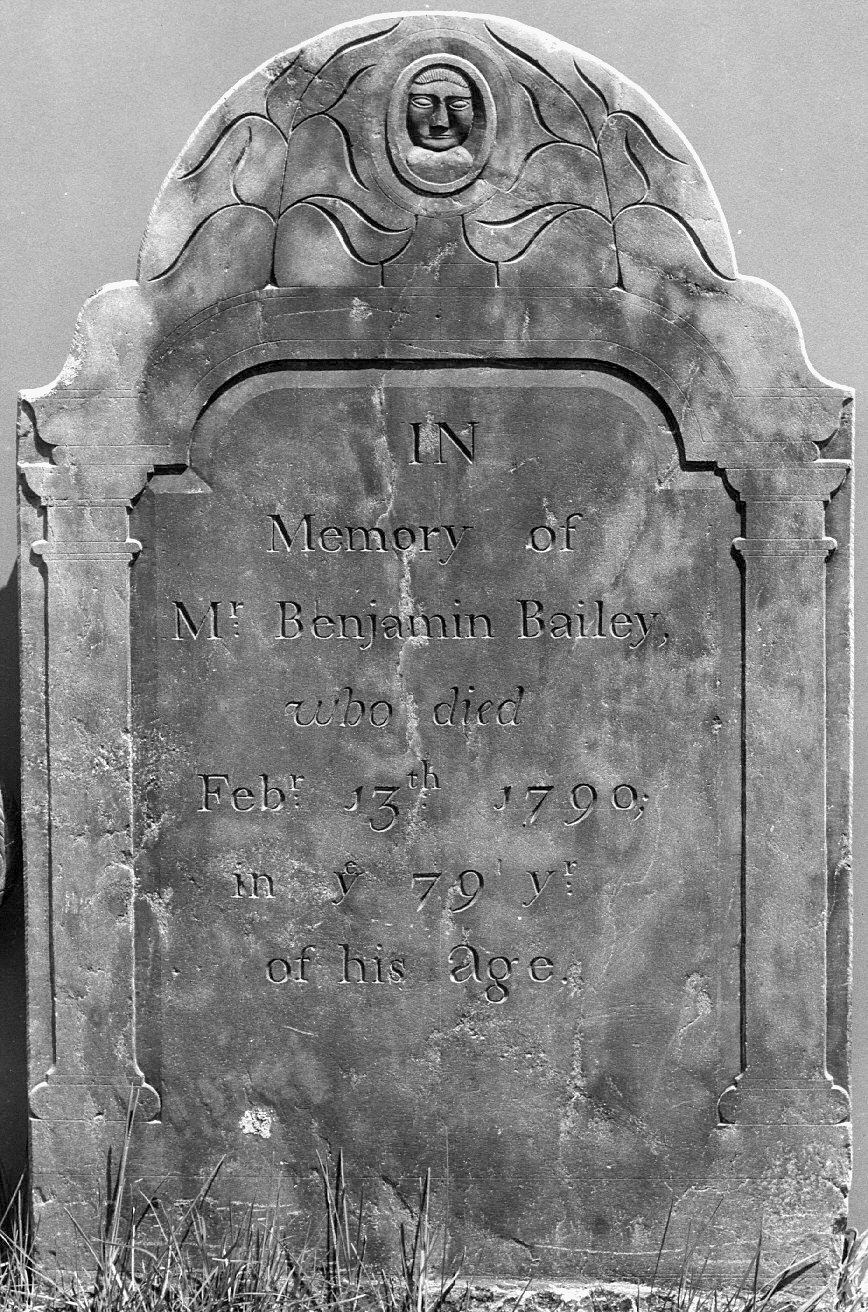 IN
Memory of
Mr Benjamin Bailey,
who died
Febr 13th 1790;
in ye 79 yr
of his age.